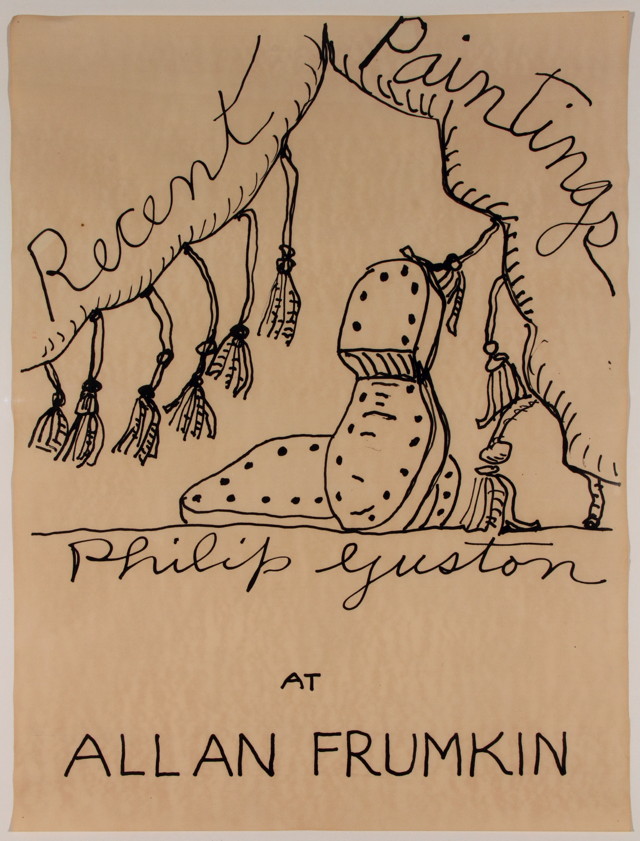 Recent Paintings
Philip Guston
AT
ALLAN FRUMKIN